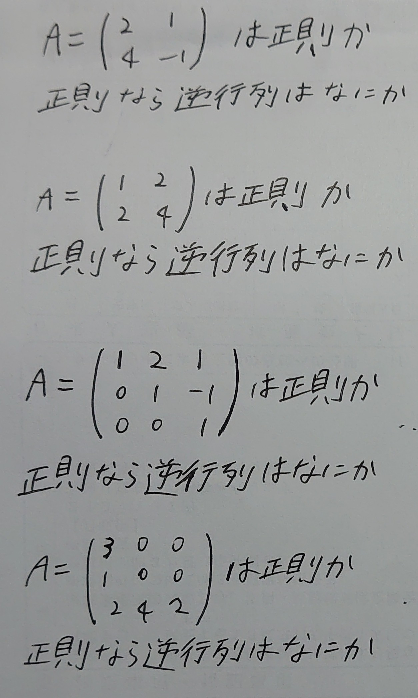 A = ( 2 1
4 -1 ) は正則か
正則なら逆行列はなにか
A = ( 1 2
2 4 ) は正則か
正則なら逆行列はなにか
A = ( 1 2 1
0 1 -1
0 0 1 ) は正則か
正則なら逆行列はなにか
A = ( 3 0 0
1 0 0
2 4 2 ) は正則か
正則なら逆行列はなにか